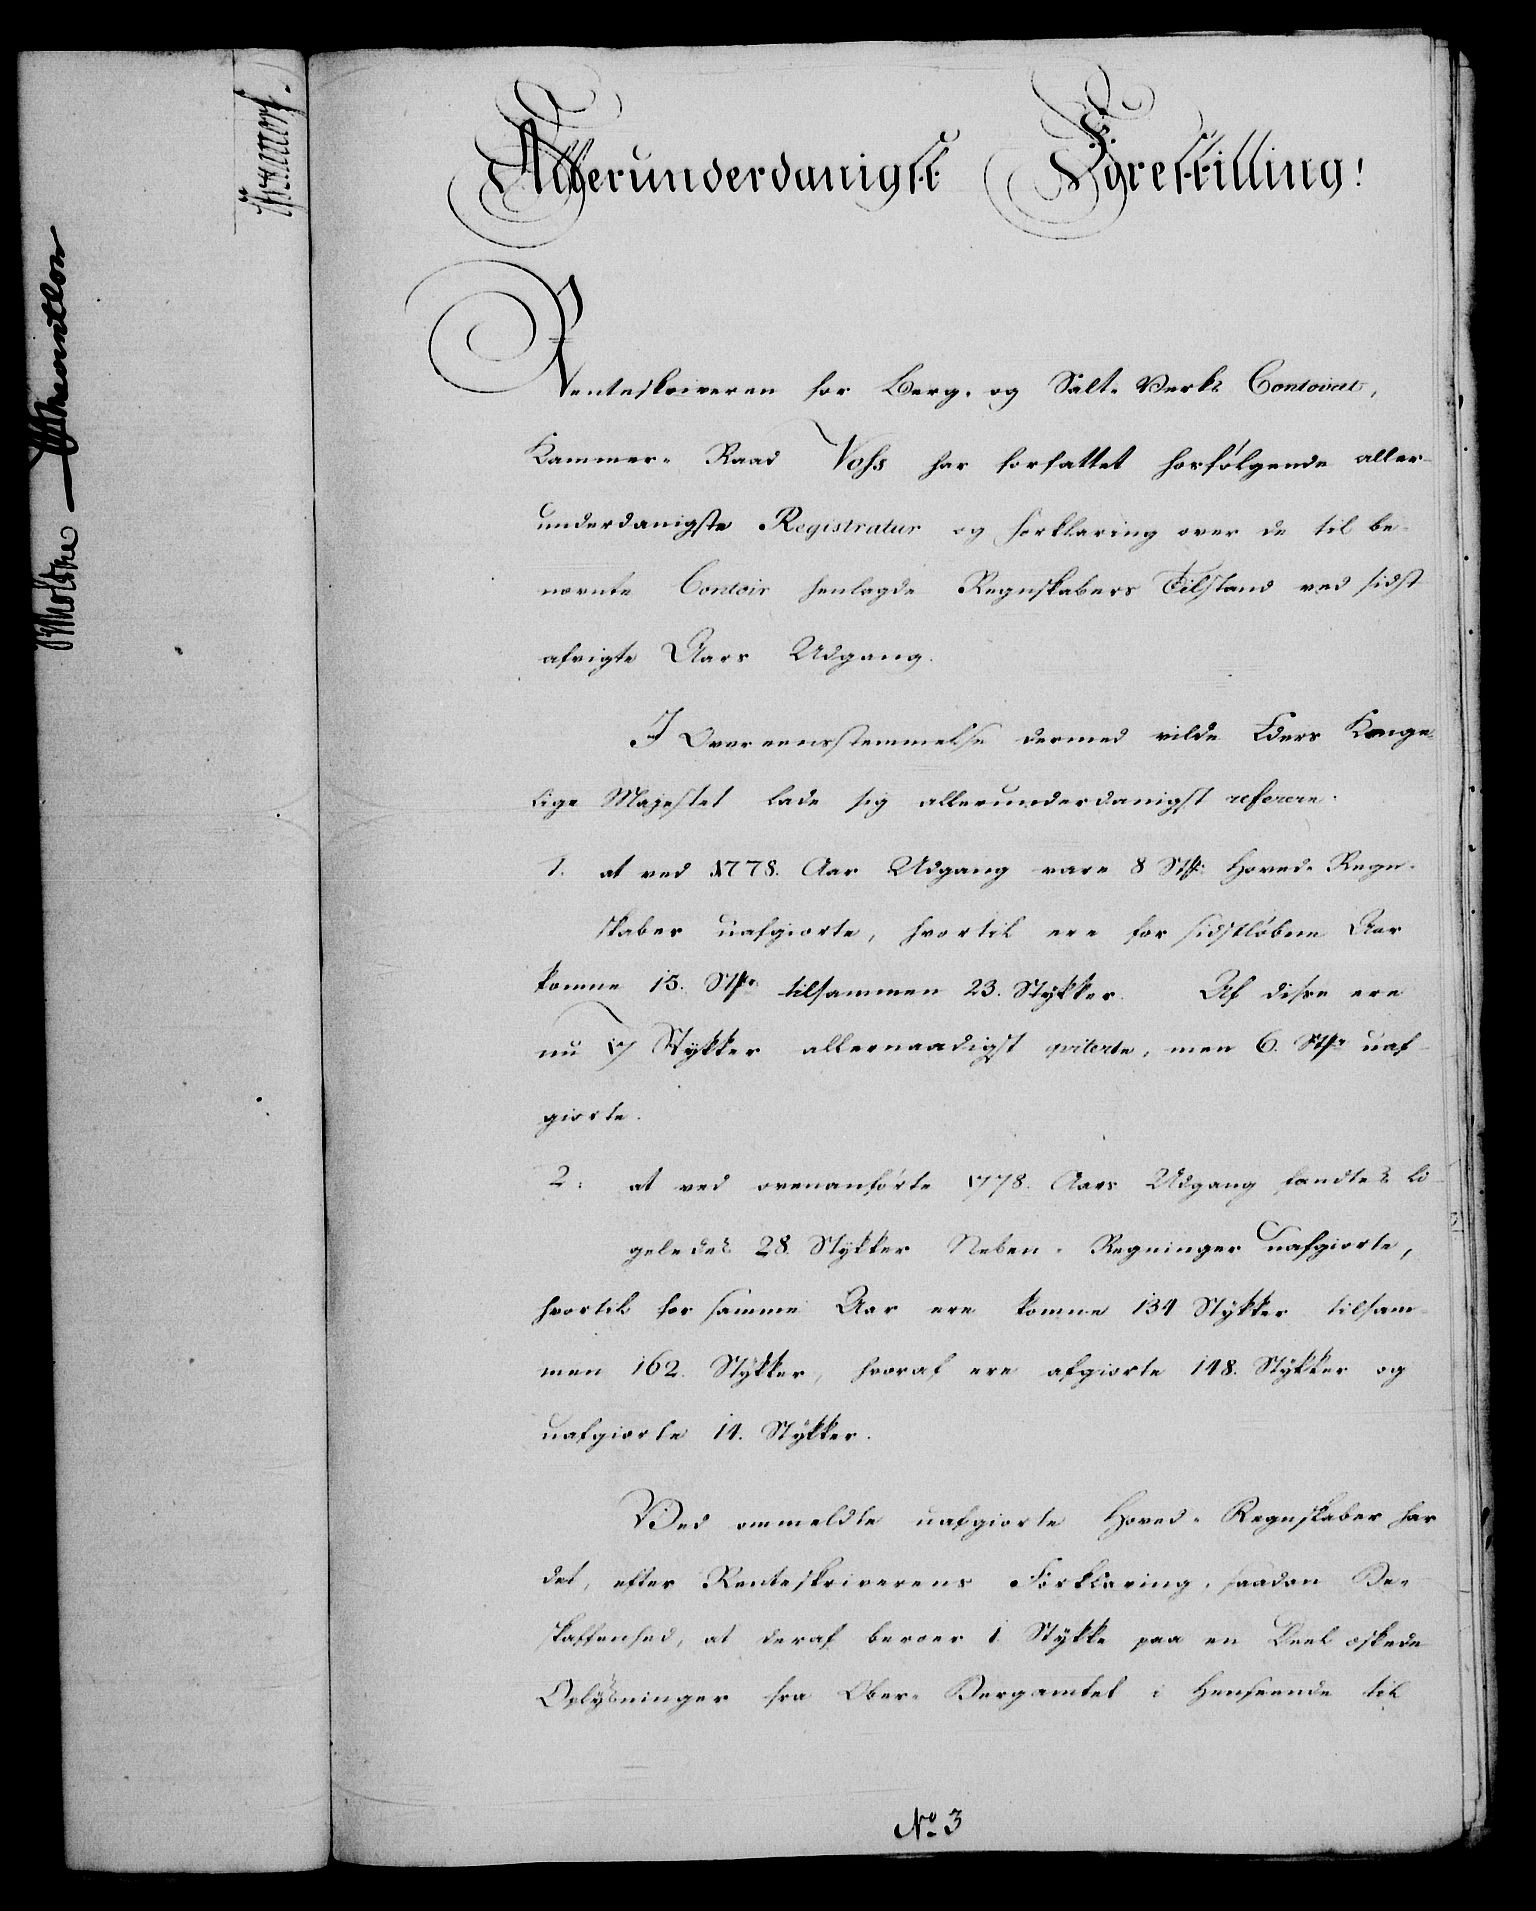 Allerunderdanigst Forestilling!
Renteskriveren for Berg- og Salt-Verks Contoiret,
Kammer-Raad Voss har forfattet hosfølgende aller-
underdanigste Registratur og Forklaring over de til be-
nævnte Contoir henlagde Regnskabers Tilstand ved sidst
afvigte Aars Udgang.
I Overeensstemmelse dermed vilde Eders Konge-
lige Majestet lade sig allerunderdanigst referere.
1. at ved 1778. Aar Udgang vare 8 Stkr Hoved-Regn-
skaber uafgiorte, hvortil ere for sidstløbne Aar
komne 15. Stkr tilsammen 23. Stykker. Af disse ere
nu 17 Stykker allernaadigst qviterte, men 6. Stkr uaf-
giorte.
2. at ved ovenanførte 1778. Aars Udgang fandtes li-
geledes 28. Stykker Neben-Regninger uafgiorte,
hvortil for samme Aar ere komne 134 Stykker tilsam-
men 162. Stykker, hvoraf ere afgiorte 148. Stykker og
uafgiorte 14. Stykker.
Ved ommeldte uafgiorte Hoved-Regnskaber har
det, efter Renteskriverens Forklaring, saadan Be-
skaffenhed, at deraf beroer 1 Stykke paa en Deel æskede
Oplysninger fra Ober-Bergamtet i Henseende til
No 3